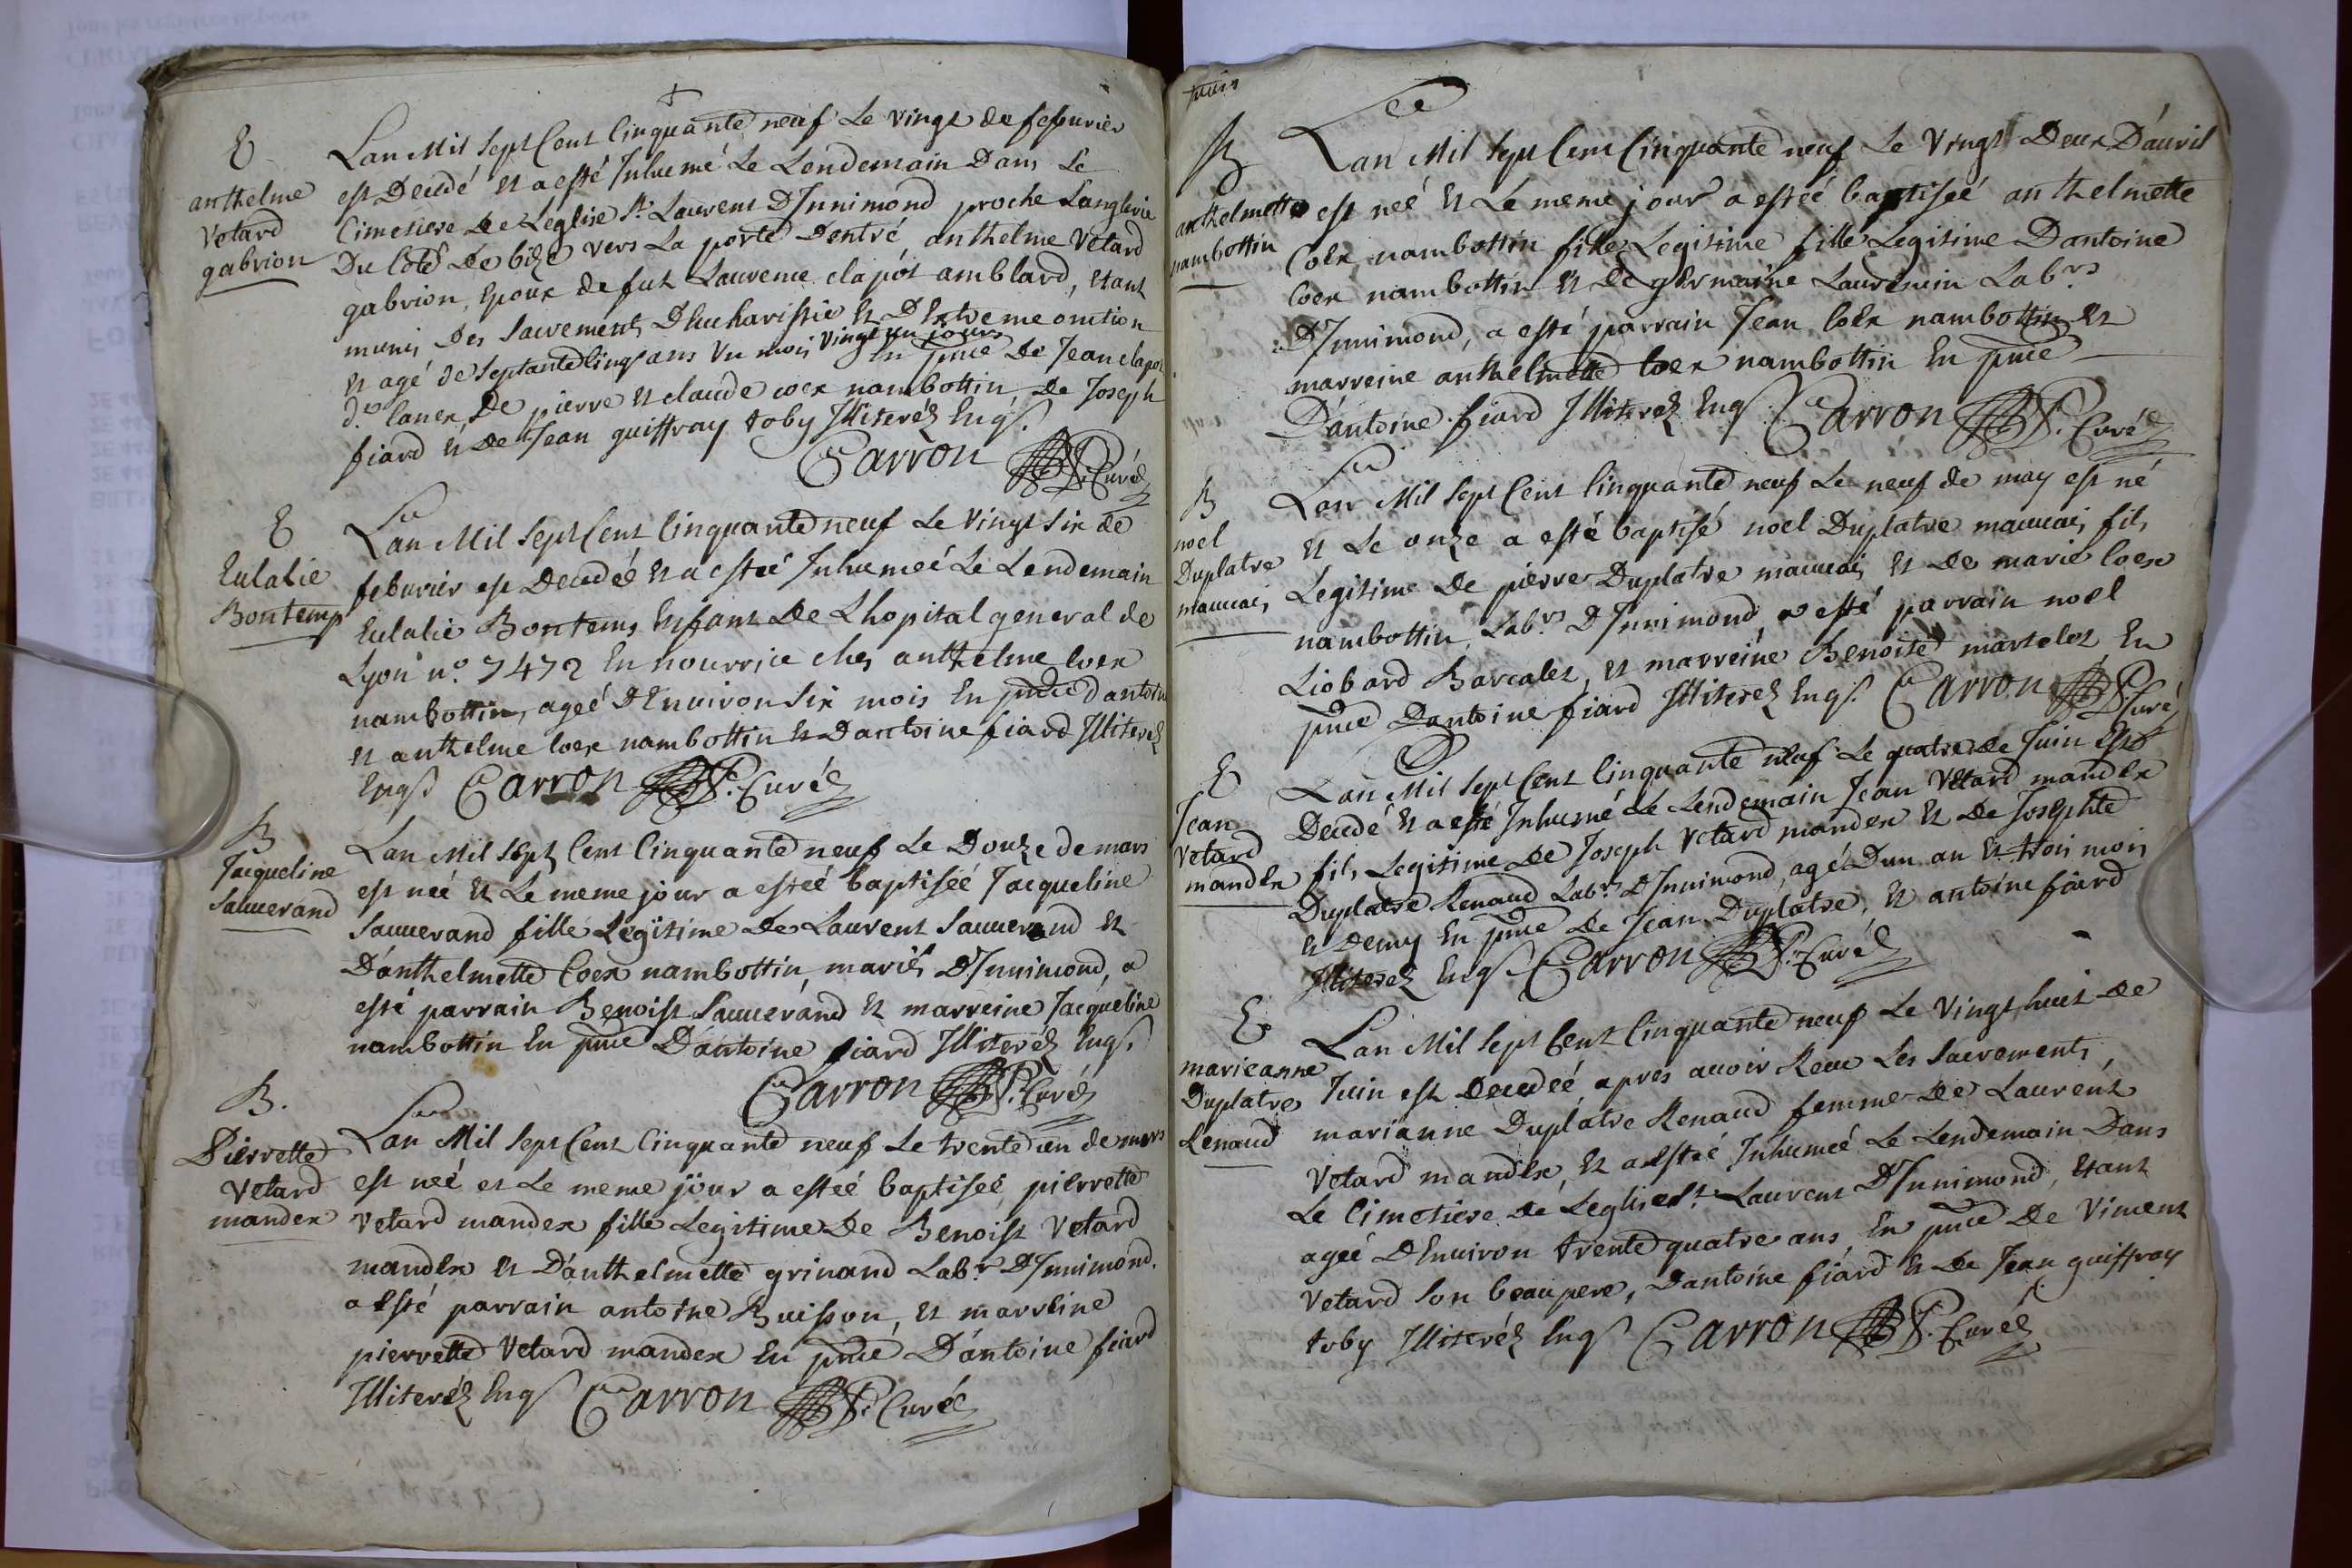 E
anthelme
Vetard
gabrion
Lan Mil Sept Cent Cinquante neuf Le vingt de febvrier
est Decedé et a esté Inhumé Le Lendemain Dans Le
Cimetiere De Leglise St Laurent D'Innimond proche Langlerie
Du Coté De bize vers La porte Dentré, anthelme Vetard
gabrion, Epoux de fut Laurence clapot amblard, etant
munis Des Sacrements D'Eucharistie et D'Extreme onction
et agé de Septante Cinq ans Un mois vingt un jours En pnce De Jean clapot
De pierre et claude coex nambottin, De Joseph
fiard et De Jean guiffray toby Illiteréz Enqs.
Carron P. Curé
E
Eulalie
Bontemp
Lan Mil Sept Cent Cinquante neuf Le vingt Six de
febvrier est Decedéé et a estéé Inhuméé Le Lendemain
Eulalie Bontems Enfant De Lhopital general de
Lyon n.o 7472 En nourrice ches anthelme Coex
nambottin, agéé D'Environ Six mois En pnce D'antoine
et anthelme Coex nambottin et D'antoine fiard Illiterez
Enqs Carron P. Curé
B
Jacqueline
Sauverand
Lan Mil Sept Cent Cinquante neuf Le Douze de mars
est néé et Le meme jour a estéé baptiséé Jacqueline
Sauverand fille Legitime De Laurent Sauverand et
D'anthelmette Coex nambottin, mariés D'Innimond, a
esté parrain Benoist Sauverand et marreine Jacqueline
nambottin En pnce D'antoine fiard Illiteréz Enqs.
Carron P. Curé
B.
Pierrette
Vetard
mandex
Lan Mil Sept Cent Cinquante neuf Le trente un de mars
est néé et Le meme jour a estéé baptiséé pierrette
Vetard mandex fille Legitime De Benoist Vetard
mandex et D'anthelmette grinand Labrs D'Innimond.
a esté parrain antoine Buisson, et marreine
pierrette Vetard mandex En pnce D'antoine fiard
Illiteréz Enqs Carron P. Curé
B
anthelmette
nambottin
Lan Mil Sept Cent Cinquante neuf Le Vingt Deux D'avril
est néé et Le meme jour a estéé baptiséé anthelmette
Coex nambottin fille Legitime fille Legitime D'antoine
Coex nambottin et De germaine Laurencin Labrs
D'Innimond, a esté parrain Jean Coex nambottin et
marreine anthelmette Coex nambottin En pnce
D'antoine fiard Illiterez Enqs Carron P. Curé
B
noel
Duplatre
mauvais
Lan Mil Sept Cent Cinquante neuf Le neuf de may est né
et Le onze a esté baptisé noel Duplatre mauvais fils
Legitime De pierre Duplatre mauvais et De marie Coex
nambottin, Labrs D'Innimond, a esté parrain noel
Liobard Barcalet, et marreine Benoite martelet, En
pnce D'antoine fiard Illiterez Enqs. Carron P. Curé
E
Jean
Vetard
mandex
Lan Mil Sept Cent Cinquante neuf Le quatre de Juin est
Decedé et a esté Inhumé Le Lendemain Jean Vetard mandex
fils Legitime De Joseph Vetard mandex et De Josephte
Duplatre Renaud Labrs D'Innimond, agé D'un an et trois mois
et Demy En pnce De Jean Duplatre, et antoine fiard
Illiterez Enqs Carron P. Curé
E
marieanne
Duplatre
Renaud
Lan Mil Sept Cent Cinquante neuf Le Vingt huit de
Juin est Decedéé après avoir Recu Les Sacrements,
marianne Duplatre Renaud femme De Laurent
Vetard mandex, et a estéé Inhuméé Le Lendemain Dans
Le Cimetiere De Leglise St. Laurent D'Innimond, etant
agéé D'Environ trente quatre ans En pnce De Vincent
Vetard Son beaupere, D'antoine fiard et De Jean guiffray
toby Illiteréz Enqs Carron P. Curé